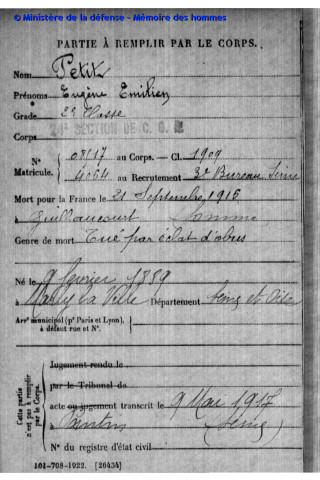 © Ministère de la défense - Mémoire des hommes
PARTIE À REMPLIR PAR LE CORPS.
Nom Petit
Prénoms Eugène Emilien
Grade 2e Classe
Corps 24e SECTION DE C. O. A
N° 08117 au Corps. — Cl. 1909
Matricule. 4064 au Recrutement 3e Bureau Seine
Mort pour la France le 21 Septembre 1916
à Guillaucourt Somme
Genre de mort Tué par éclat d'obus
Né le 9 février 1889
à Marly la Ville Département Seine et Oise
Arrt municipal (pr Paris et Lyon),
à défaut rue et N°.
Cette partie
n'est pas à remplir
par le Corps.
Jugement rendu le
par le Tribunal de
acte ou jugement transcrit le 9 Mai 1917
à Pantin (Seine)
N° du registre d'état civil
101-708-1922. [26434]